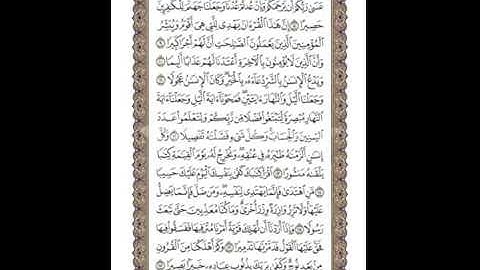 عَسَىٰ رَبُّكُمْ أَن يَرْحَمَكُمْ ۚ وَإِنْ عُدتُّمْ عُدْنَا ۘ وَجَعَلْنَا جَهَنَّمَ لِلْكَٰفِرِينَ
حَصِيرًا ٨ إِنَّ هَٰذَا ٱلْقُرْءَانَ يَهْدِى لِلَّتِى هِىَ أَقْوَمُ وَيُبَشِّرُ
ٱلْمُؤْمِنِينَ ٱلَّذِينَ يَعْمَلُونَ ٱلصَّٰلِحَٰتِ أَنَّ لَهُمْ أَجْرًا كَبِيرًا ٩
وَأَنَّ ٱلَّذِينَ لَا يُؤْمِنُونَ بِٱلْءَاخِرَةِ أَعْتَدْنَا لَهُمْ عَذَابًا أَلِيمًا ١٠
وَيَدْعُ ٱلْإِنسَٰنُ بِٱلشَّرِّ دُعَآءَهُۥ بِٱلْخَيْرِ ۖ وَكَانَ ٱلْإِنسَٰنُ عَجُولًا ١١
وَجَعَلْنَا ٱلَّيْلَ وَٱلنَّهَارَ ءَايَتَيْنِ ۖ فَمَحَوْنَآ ءَايَةَ ٱلَّيْلِ وَجَعَلْنَآ ءَايَةَ
ٱلنَّهَارِ مُبْصِرَةً لِّتَبْتَغُوا۟ فَضْلًا مِّن رَّبِّكُمْ وَلِتَعْلَمُوا۟ عَدَدَ
ٱلسِّنِينَ وَٱلْحِسَابَ ۚ وَكُلَّ شَىْءٍ فَصَّلْنَٰهُ تَفْصِيلًا ١٢ وَكُلَّ
إِنسَٰنٍ أَلْزَمْنَٰهُ طَٰٓئِرَهُۥ فِى عُنُقِهِۦ ۖ وَنُخْرِجُ لَهُۥ يَوْمَ ٱلْقِيَٰمَةِ كِتَٰبًا
يَلْقَىٰهُ مَنشُورًا ١٣ ٱقْرَأْ كِتَٰبَكَ كَفَىٰ بِنَفْسِكَ ٱلْيَوْمَ عَلَيْكَ حَسِيبًا
١٤ مَّنِ ٱهْتَدَىٰ فَإِنَّمَا يَهْتَدِى لِنَفْسِهِۦ ۖ وَمَن ضَلَّ فَإِنَّمَا يَضِلُّ
عَلَيْهَا ۚ وَلَا تَزِرُ وَازِرَةٌ وِزْرَ أُخْرَىٰ ۗ وَمَا كُنَّا مُعَذِّبِينَ حَتَّىٰ نَبْعَثَ
رَسُولًا ١٥ وَإِذَآ أَرَدْنَآ أَن نُّهْلِكَ قَرْيَةً أَمَرْنَا مُتْرَفِيهَا فَفَسَقُوا۟ فِيهَا
فَحَقَّ عَلَيْهَا ٱلْقَوْلُ فَدَمَّرْنَٰهَا تَدْمِيرًا ١٦ وَكَمْ أَهْلَكْنَا مِنَ ٱلْقُرُونِ
مِنۢ بَعْدِ نُوحٍ ۗ وَكَفَىٰ بِرَبِّكَ بِذُنُوبِ عِبَادِهِۦ خَبِيرًۢا بَصِيرًا ١٧